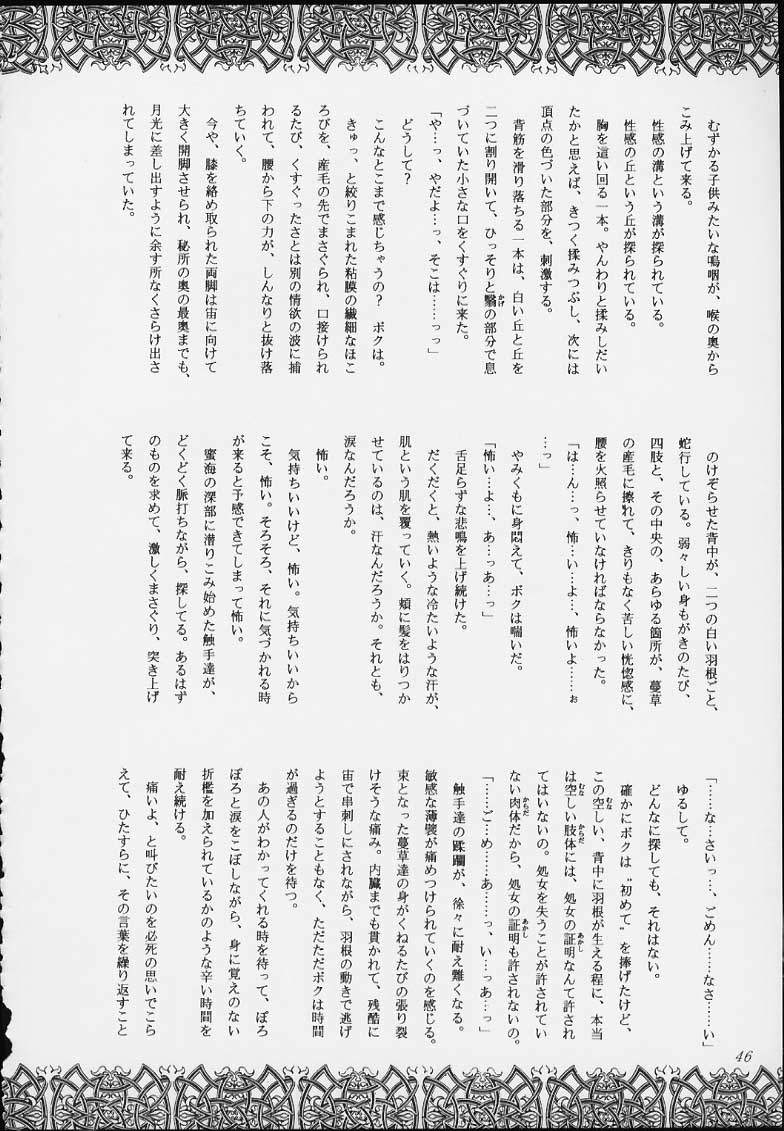 むずかる子供みたいな嗚咽が、喉の奥から
こみ上げて来る。
性感の溝という溝が探られている。
性感の丘という丘が探られている。
胸を這い回る一本。やんわりと揉みしだい
たかと思えば、きつく揉みつぶし、次には
頂点の色づいた部分を、刺激する。
背筋を滑り落ちる一本は、白い丘と丘を
二つに割り開いて、ひっそりと翳の部分で息
づいていた小さな口をくすぐりに来た。
「や…っ、やだよ…っ、そこは……っっ」
どうして？
こんなとこまで感じちゃうの？　ボクは。
きゅっ、と絞りこまれた粘膜の繊細なほこ
ろびを、産毛の先でまさぐられ、口接けられ
るたび、くすぐったさとは別の情欲の波に捕
われて、腰から下の力が、しんなりと抜け落
ちていく。
今や、膝を絡め取られた両脚は宙に向けて
大きく開脚させられ、秘所の奥の最奥までも、
月光に差し出すように余す所なくさらけ出さ
れてしまっていた。
のけぞらせた背中が、二つの白い羽根ごと、
蛇行している。弱々しい身もがきのたび、
四肢と、その中央の、あらゆる箇所が、蔓草
の産毛に擦れて、きりもなく苦しい恍惚感に、
腰を火照らせていなければならなかった。
「は…ん…っ、怖…い…よ…、怖いよ……ぉ
…っ」
やみくもに身悶えて、ボクは喘いだ。
「怖い…よ…、あ…っあ…っ」
舌足らずな悲鳴を上げ続けた。
だくだくと、熱いような冷たいような汗が、
肌という肌を覆っていく。頬に髪をはりつか
せているのは、汗なんだろうか。それとも、
涙なんだろうか。
怖い。
気持ちいいけど、怖い。気持ちいいから
こそ、怖い。そろそろ、それに気づかれる時
が来ると予感できてしまって怖い。
蜜海の深部に潜りこみ始めた触手達が、
どくどく脈打ちながら、探してる。あるはず
のものを求めて、激しくまさぐり、突き上げ
て来る。
「……な…さいっ…、ごめん……なさ……い」
ゆるして。
どんなに探しても、それはない。
確かにボクは〝初めて〟を捧げたけど、
この空しい、背中に羽根が生える程に、本当
は空しい肢体には、処女の証明なんて許され
てはいないの。処女を失うことが許されてい
ない肉体だから、処女の証明も許されないの。
「……ご…め……あ……っ、い…っあ…っ」
触手達の蹂躙が、徐々に耐え難くなる。
敏感な薄襞が痛めつけられていくのを感じる。
束となった蔓草達の身がくねるたびの張り裂
けそうな痛み。内臓までも貫かれて、残酷に
宙で串刺しにされながら、羽根の動きで逃げ
ようとすることもなく、ただただボクは時間
が過ぎるのだけを待つ。
あの人がわかってくれる時を待って、ぽろ
ぽろと涙をこぼしながら、身に覚えのない
折檻を加えられているかのような辛い時間を
耐え続ける。
痛いよ、と叫びたいのを必死の思いでこら
えて、ひたすらに、その言葉を繰り返すこと
46